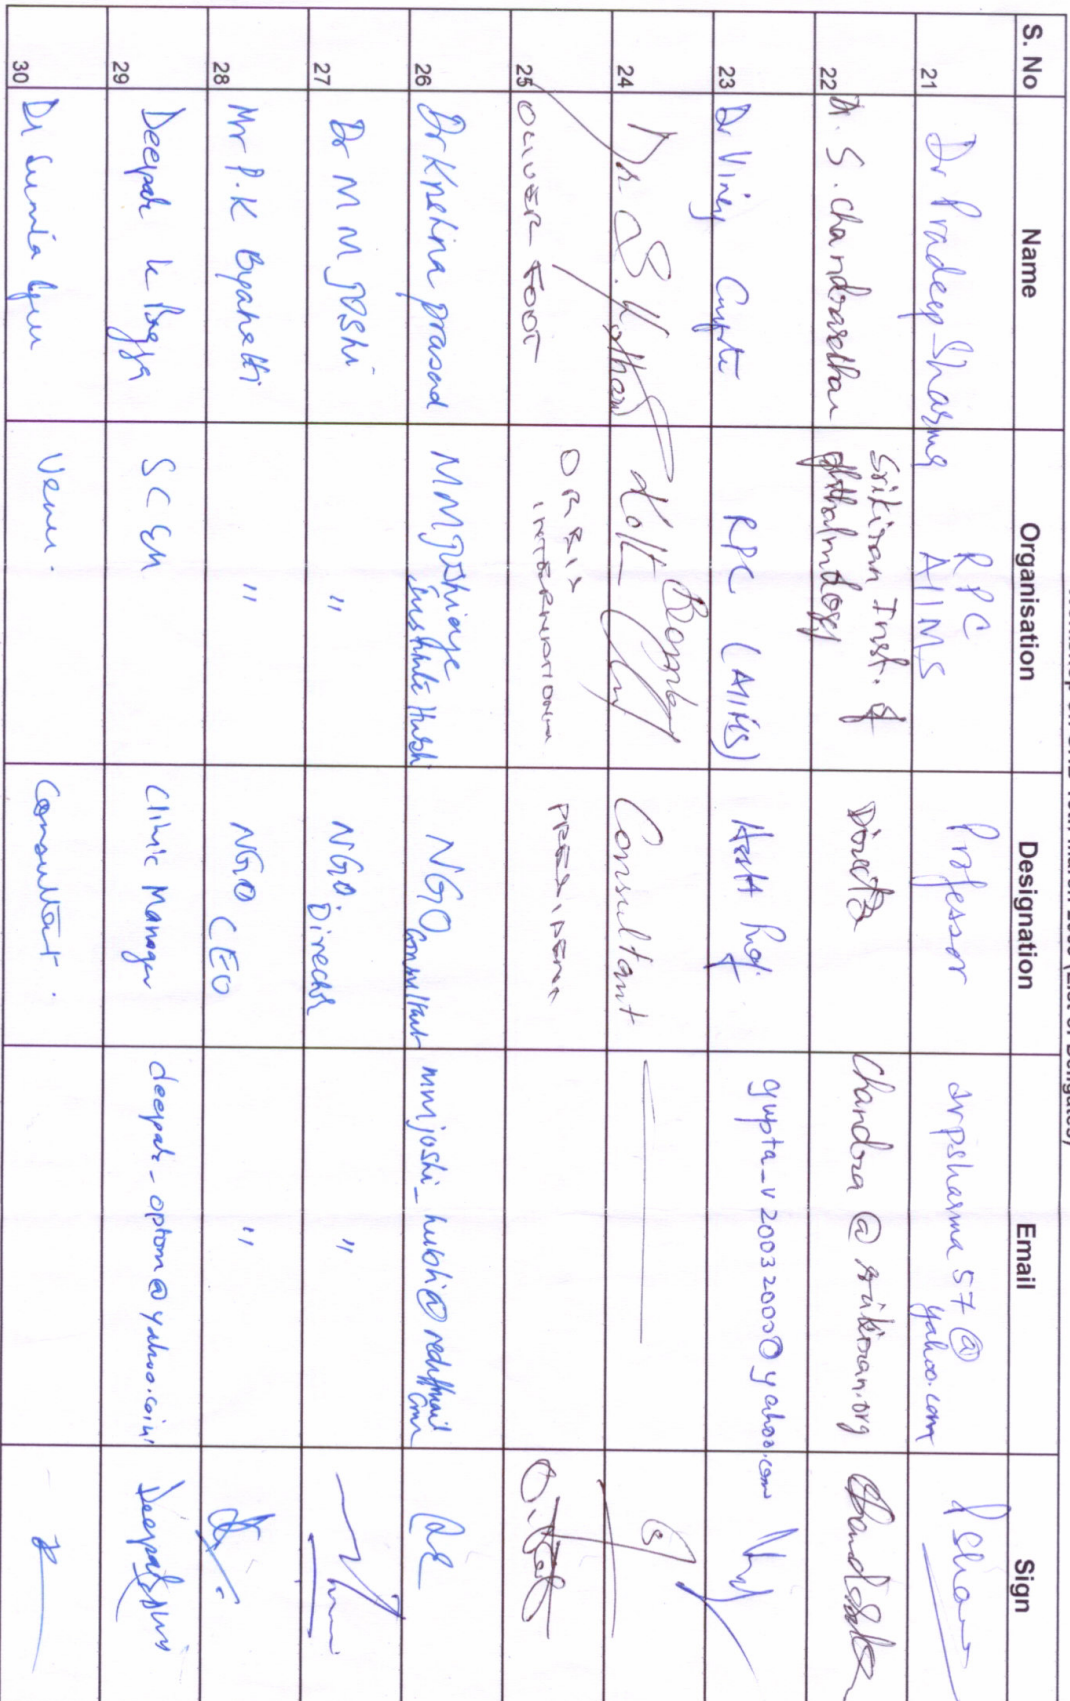 March 2009 (List of Deligates)
S. No Name Organisation Designation Email Sign
21 Dr Pradeep Sharma RPC AIIMS Professor drpsharma57@yahoo.com
22 Dr. S. Chandrasedhar Srikiran Inst. of Ophthalmology Director Chandra@srikiran.org
23 Dr Viney Gupta RPC (AIIMS) Asstt Prof. gupta_v20032000@yahoo.com
24 Dr. S. Kothari Bombay Consultant
25 OLIVER FOOT ORBIS INTERNATIONAL PRESIDENT
26 Dr Krishna prasad MM Joshi eye Institute Hubli NGO Consultant mmjoshi_hubli@rediffmail.com
27 Dr M M Joshi " NGO. Director "
28 Mr P.K Byahatti " NGO CEO "
29 Deepak k Bagga SCEH Clinic Manager deepak-optom@yahoo.co.in
30 Dr Venu. Consultant.